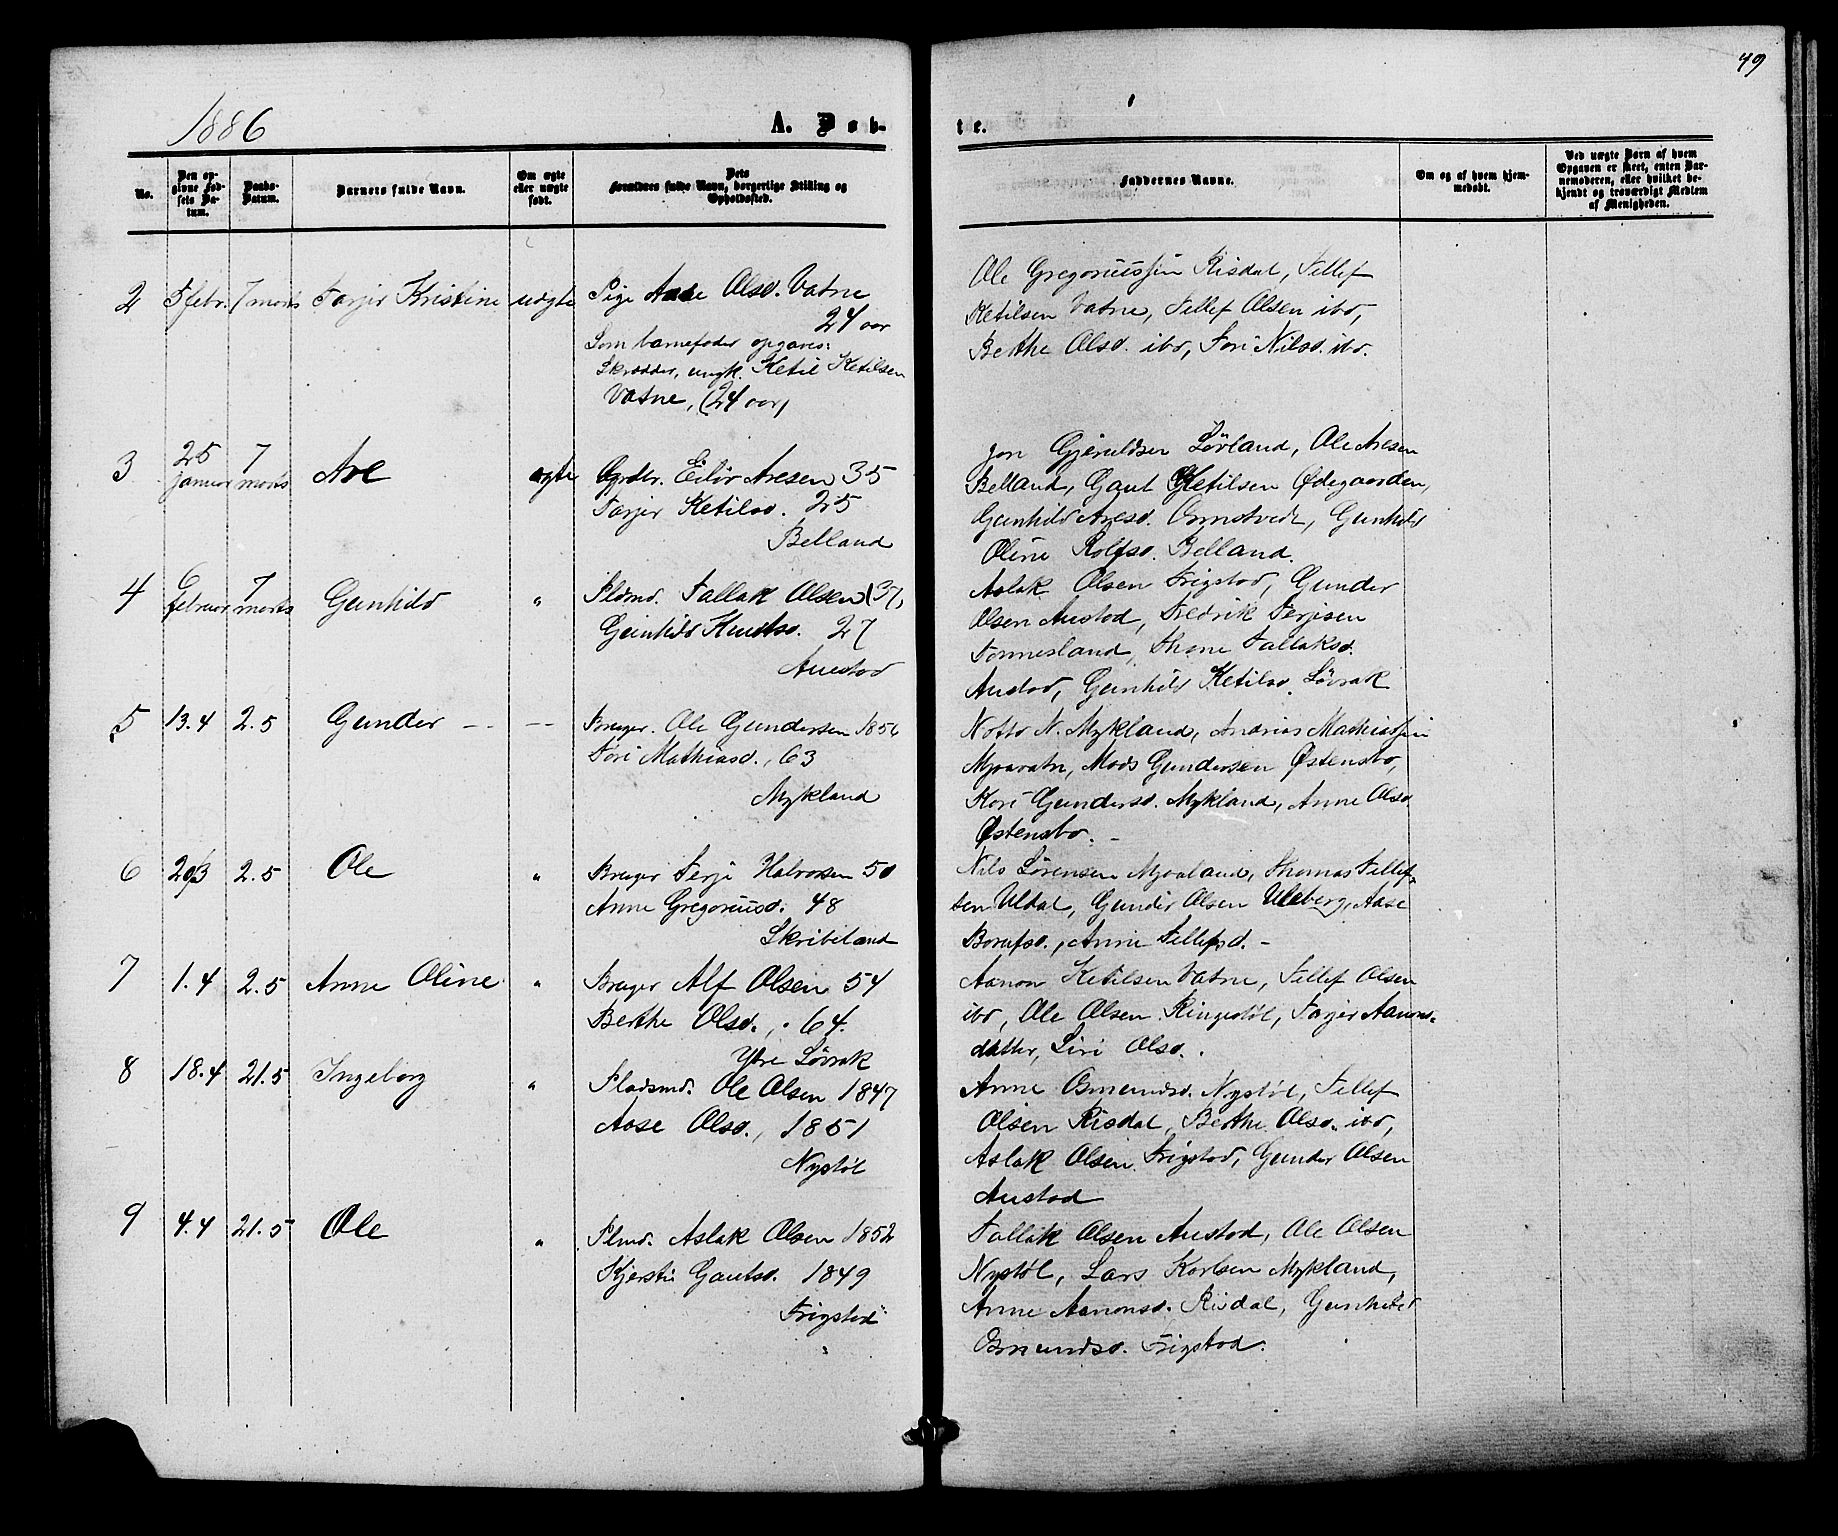 49
1886
A. Døb-
te.
No.
Den op-
givne Fød-
sels Da-
tum.
Daabs-
Datum.
Barnets fulde Navn.
Om ægte
eller uægte
født.
Dets
Forældres fulde Navn, borgerlige Stilling og
Opholdssted.
Faddernes Navne.
Om og af hvem hjem-
medøbt.
Ved uægte Børn af hvem
Opgaven er skeet, enten Bar-
nemoderen, eller hvilket be-
kjendt og troværdigt Medlem
af Menigheden.
2 5 febr. 7 marts Tarjer Kristine uægte Pige Aase Olsd. Vatne
24 aar
Som barnefader opgaves:
Skrædder, ungk. Ketil Ketilsen
Vatne, (24 aar)
Ole Gregoriussen Risdal, Tellef
Ketilsen Vatne, Tellef Olsen ibd,
Berthe Olsd. ibd, Tori Nilsd. ibd.
3 25 januar 7 marts Are ægte Grdbr. Eiliv Aresen 35
Tarjer Ketilsd. 25
Belland
Jon Gjeruldsen Løvland, Ole Aresen
Belland, Gaut Ketilsen Ødegaarden,
Gunhild Aresd. Omstvedt, Gunhild
Oline Rolfsd. Belland.
4 6 februar 7 marts Gunhild " Pldsmd. Tallak Olsen (37)
Gunhild Knutsd. 27
Austad
Aslak Olsen Frigstad, Gunder
Olsen Austad, Fredrik Terjesen
Tonnesland, Thone Tallaksd.
Austad, Gunhild Ketilsd. Løvrak
5 13.4 2.5 Gunder -- -- Bruger. Ole Gundersen 1856
Tori Mathiasd., 63
Mykland
Notto N. Mykland, Andrias Mathiassen
Myravatn, Mads Gundersen Østensbø,
Kari Gundersd. Mykland, Anne Olsd.
Østensbø. -
6 20/3 2.5 Ole " Bruger Terje Halvorsen 50
Anne Gregoriusd. 48
Skribeland
Nils Sørensen Mjaaland, Thomas Tellef-
sen Uldal, Gunder Olsen Uleberg, Aase
Tellefsd. -
7 1.4 2.5 Anne Oline " Bruger Alf Olsen 54
Berthe Olsd., 64.
Ytre Løvrak
Aanon Ketilsen Vatne, Tellef Olsen
ibd, Ole Olsen Ringestøl, Tarjer Aanons-
datter, Siri Olsd.
8 18.4 21.5 Ingeborg " Pladsmd. Ole Olsen 1847
Aase Olsd., 1851
Nystøl
Anne Osmundsd. Nystøl, Tellef
Olsen Risdal, Berthe Olsd. ibd,
Aslak Olsen Frigstad, Gunder Olsen
Austad
9 4.4 21.5 Ole " Plmd. Aslak Olsen 1852
Kjersti Gautsd. 1849
Frigstad
Tallak Olsen Austad, Ole Olsen
Nystøl, Lars Karlsen Mykland,
Anne Aanonsd. Risdal, Gunhild
Osmundsd. Frigstad.